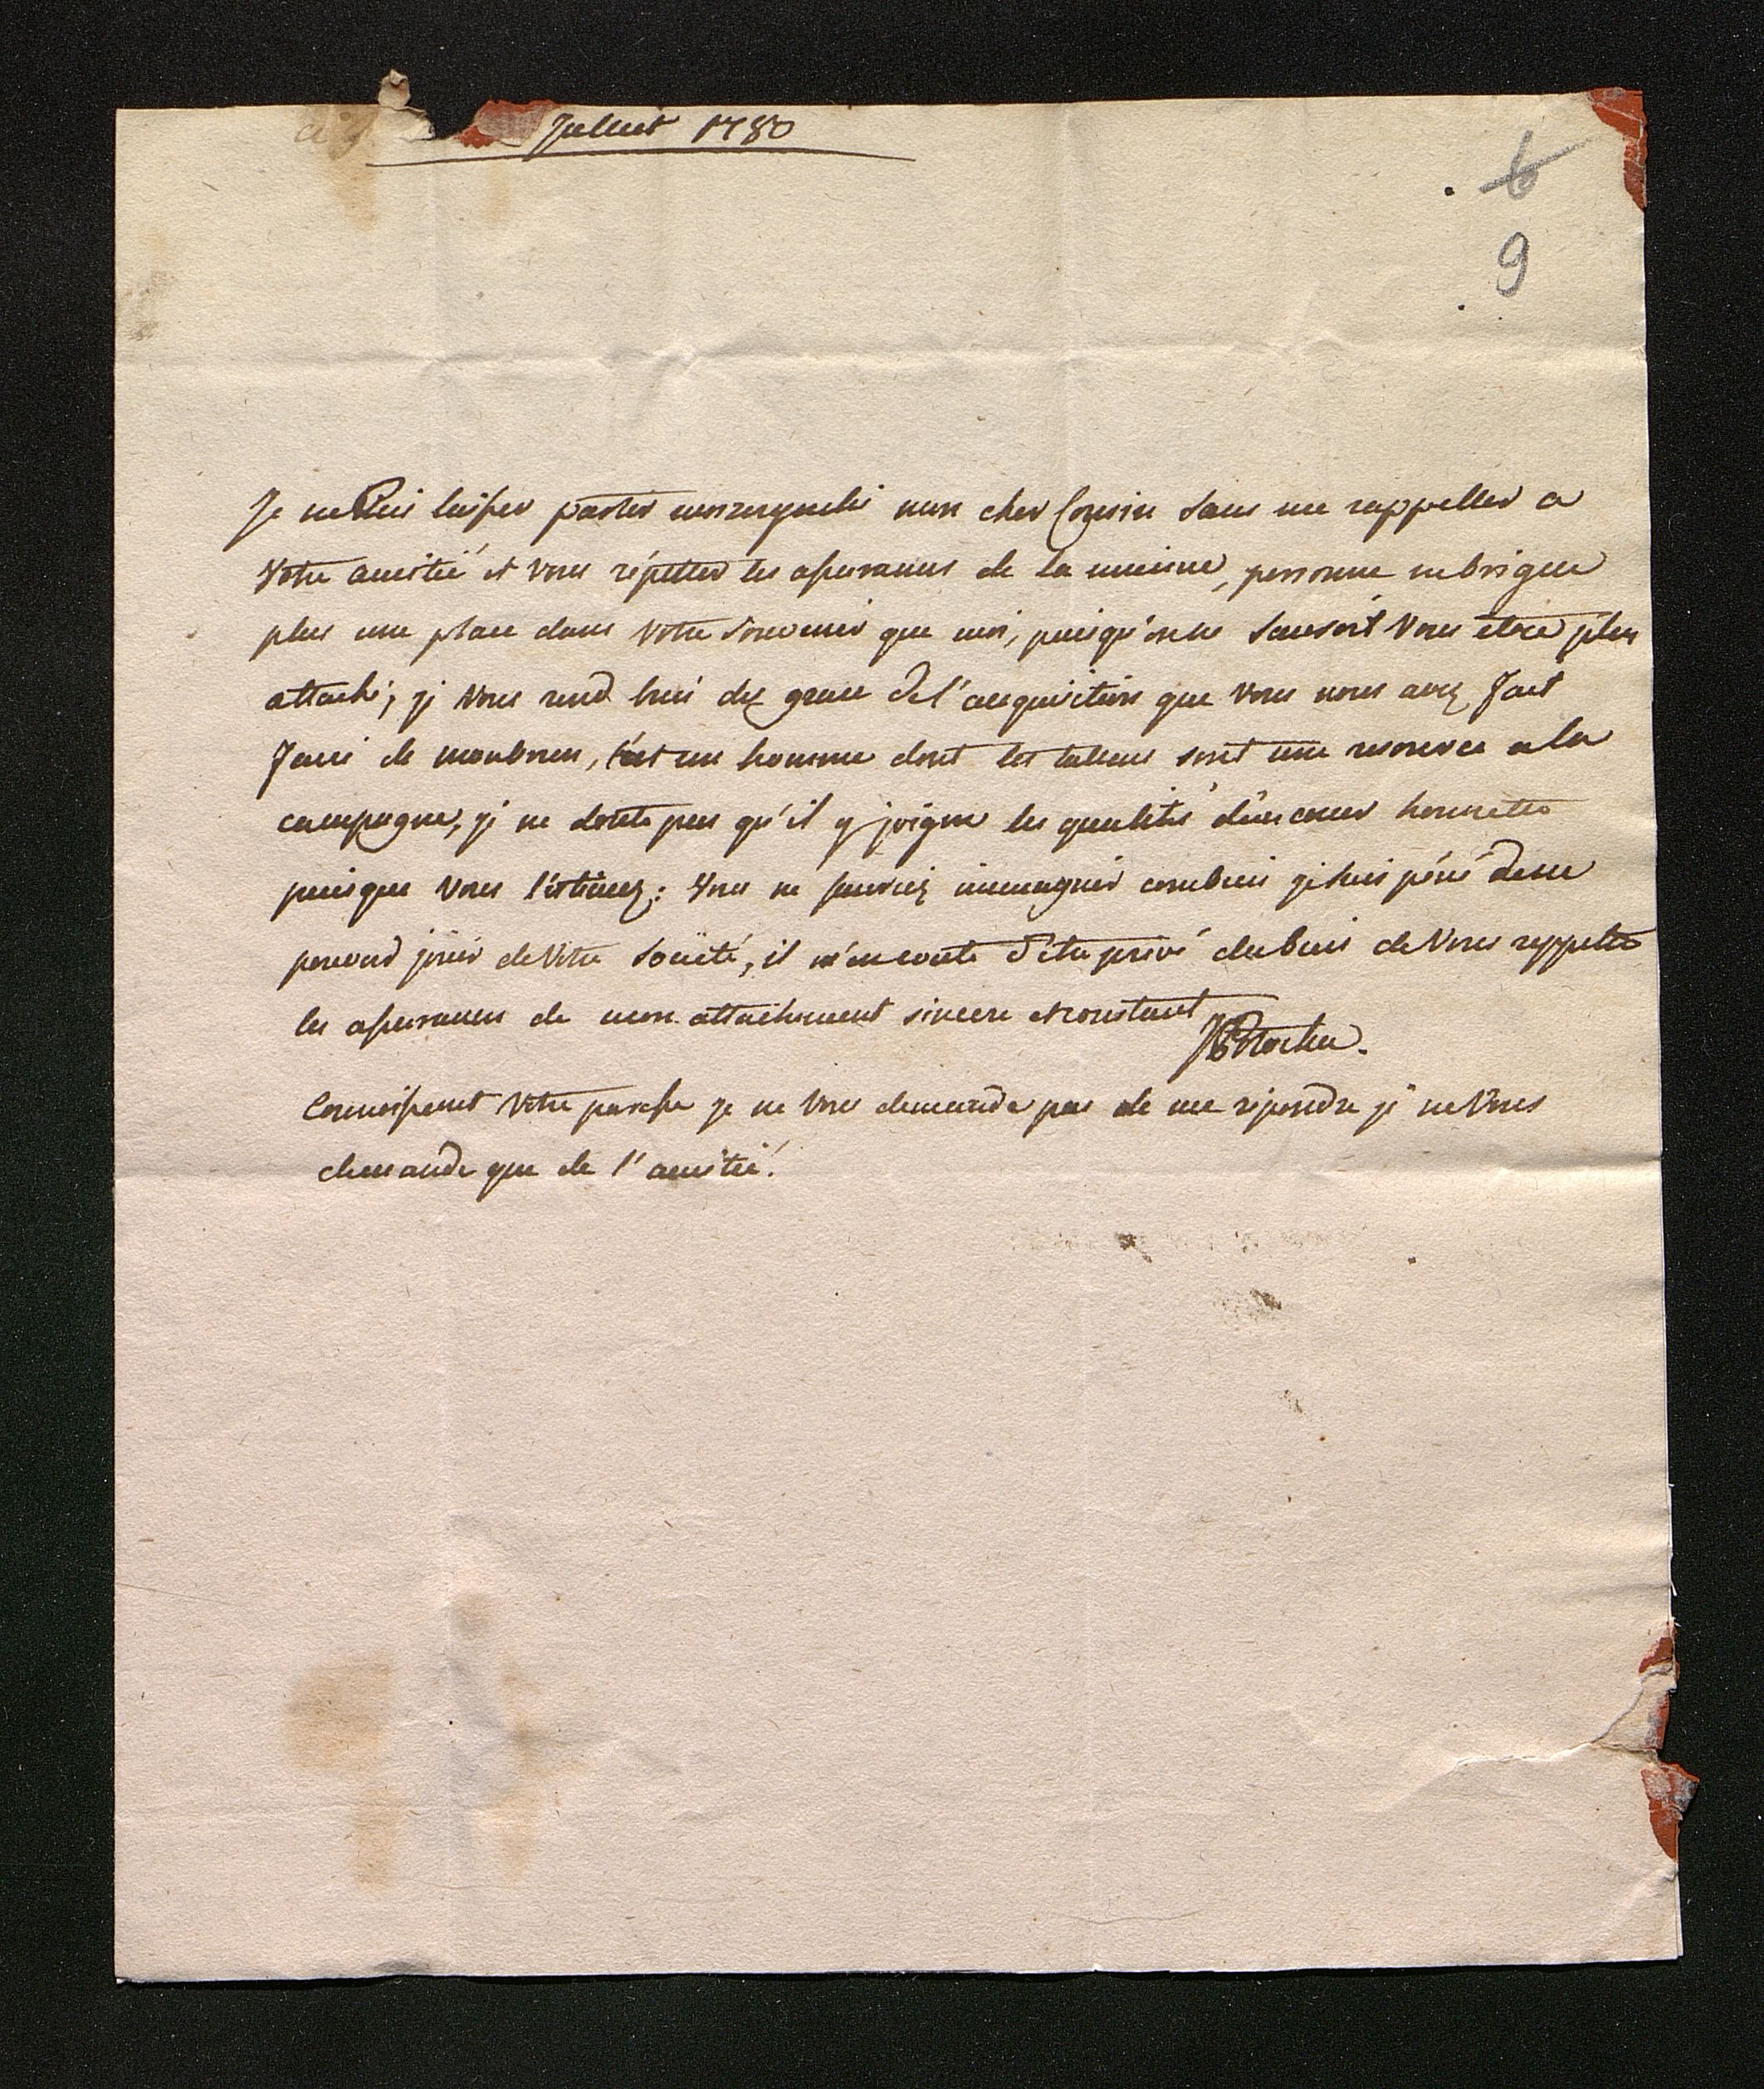 Jullet 1780
6
9
Je ne Puis laisser partir mon cher Cousin sans me rappeller a
Votre amitié et vous répetter les assurances de la mienne, personne ne brigue
plus une place dans Votre souvenir que moi, puisqu'on ne sauroit Vous être plus
attaché; je Vous rend bien des grace de l'acquisition que Vous nous avez fait
faire de , c'est un homme dont les tallens sont une resource a la
campagne, je ne doute pas qu'il y joigne les qualités d'un coeur honnette
puisque Vous l'estimez: Vous ne sauriez immaginer combien je suis péné de ne
pouvoir jouir de Votre société, il m'en coute d'être privé du bien de Vous reppetter
les assurances de mon attachement sincere et constant
JPotocka.
Connoissant Votre paresse je ne Vous demande pas de me répondre je ne Vous
demande que de l'amitié.